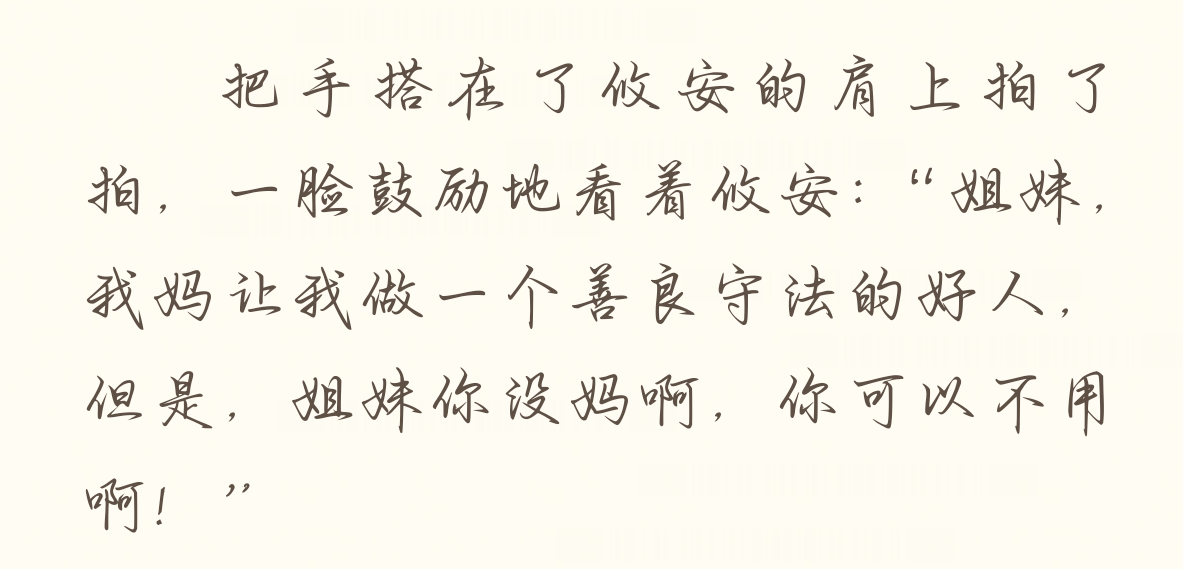 把手搭在了攸安的肩上拍了
拍，一脸鼓励地看着攸安：“姐妹，
我妈让我做一个善良守法的好人，
但是，姐妹你没妈啊，你可以不用
啊！”